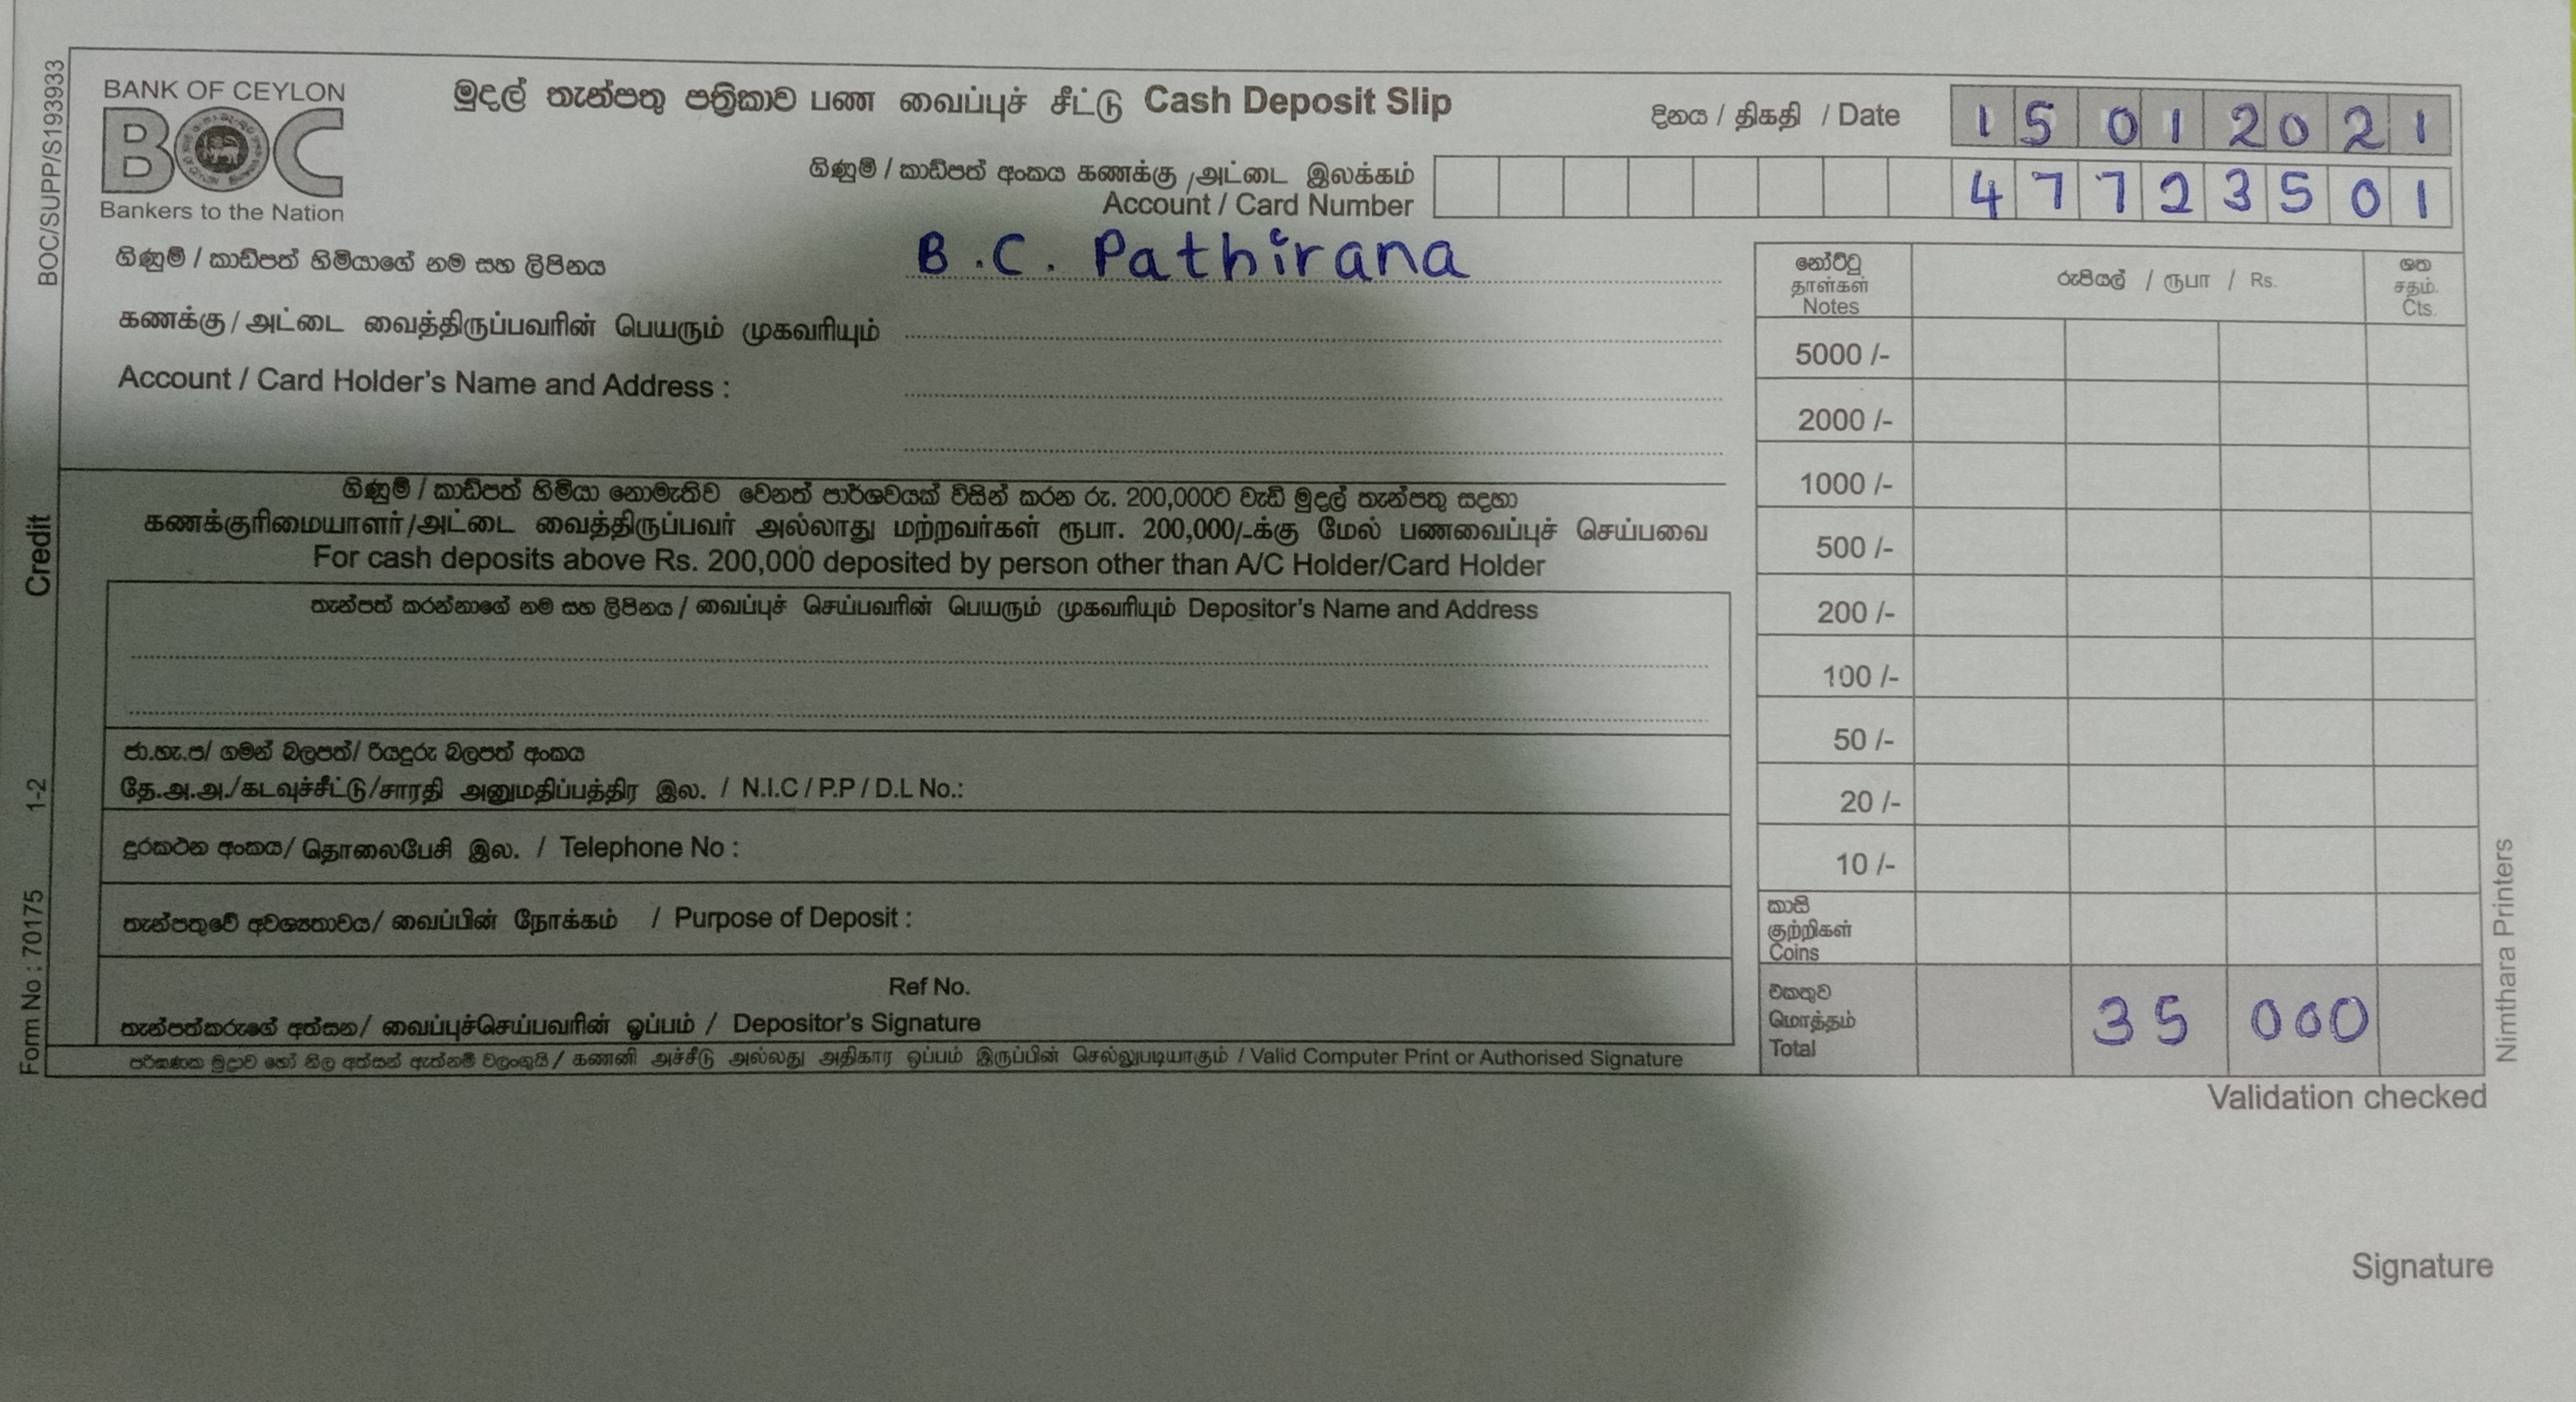 BOC/SUPP/S193933
BANK OF CEYLON
BOC
Bankers to the Nation
මුදල් තැන්පතු පත්‍රිකාව பண வைப்புச் சீட்டு Cash Deposit Slip
දිනය / திகதி / Date 15 01 2021
ගිණුම් / කාඩ්පත් අංකය கணக்கு / அட்டை இலக்கம்
Account / Card Number 47723501
ගිණුම් / කාඩ්පත් හිමියාගේ නම සහ ලිපිනය B.C. Pathirana
கணக்கு / அட்டை வைத்திருப்பவரின் பெயரும் முகவரியும்
Account / Card Holder's Name and Address :
ගිණුම් / කාඩ්පත් හිමියා නොමැතිව වෙනත් පාර්ශවයක් විසින් කරන රු. 200,000ට වැඩි මුදල් තැන්පතු සඳහා
கணக்குரிமையாளர்/அட்டை வைத்திருப்பவர் அல்லாது மற்றவர்கள் ரூபா. 200,000/-க்கு மேல் பணவைப்புச் செய்பவை
For cash deposits above Rs. 200,000 deposited by person other than A/C Holder/Card Holder
තැන්පත් කරන්නාගේ නම සහ ලිපිනය / வைப்புச் செய்பவரின் பெயரும் முகவரியும் Depositor's Name and Address
ජා.හැ.ප/ ගමන් බලපත්/ රියදුරු බලපත් අංකය
தே.அ.அ./கடவுச்சீட்டு/சாரதி அனுமதிப்பத்திர இல. / N.I.C / P.P / D.L No.:
දුරකථන අංකය/ தொலைபேசி இல. / Telephone No :
තැන්පතුවේ අවශ්‍යතාවය/ வைப்பின் நோக்கம் / Purpose of Deposit :
Ref No.
තැන්පත්කරුගේ අත්සන/ வைப்புச்செய்பவரின் ஒப்பம் / Depositor's Signature
පරිගණක මුද්‍රාව හෝ නිල අත්සන් ඇත්නම් වලංගුයි / கணனி அச்சீடு அல்லது அதிகார ஒப்பம் இருப்பின் செல்லுபடியாகும் / Valid Computer Print or Authorised Signature
නෝට්ටු
தாள்கள்
Notes
රුපියල් / ரூபா / Rs.
ශත
சதம்.
Cts.
5000 /-
2000 /-
1000 /-
500 /-
200 /-
100 /-
50 /-
20 /-
10 /-
කාසි
குற்றிகள்
Coins
එකතුව
மொத்தம்
Total
35 000
Validation checked
Signature
Form No : 70175
1-2
Credit
Nimthara Printers